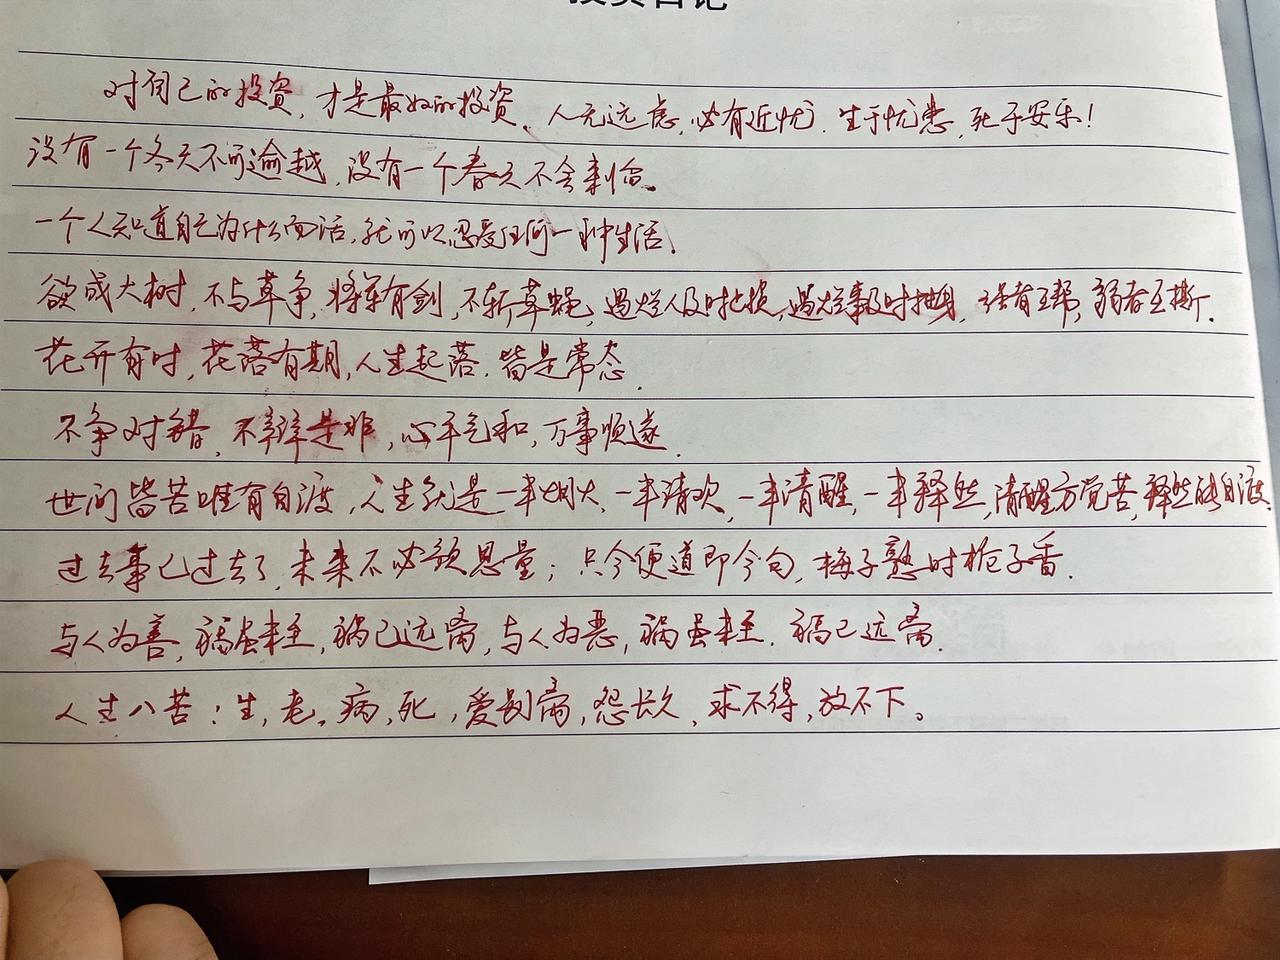 投资日记
对自己的投资,才是最好的投资。人无远虑,必有近忧。生于忧患,死于安乐!
没有一个冬天不可逾越,没有一个春天不会来临。
一个人知道自己为什么而活,就可以忍受任何一种生活。
欲成大树,不与草争,将军有剑,不斩草蝇,遇烂人及时止损,遇烂事及时抽身,强者互帮,弱者互撕.
花开有时,花落有期,人生起落,皆是常态.
不争对错,不辩是非,心平气和,万事顺遂.
世间皆苦唯有自渡,人生就是一半烟火,一半清欢,一半清醒,一半释然,清醒方觉苦,释然能自渡.
过去事已过去了,未来不必预思量;只今便道即今句,梅子熟时栀子香.
与人为善,福虽未至,祸已远离,与人为恶,祸虽未至,福已远离.
人生八苦:生,老,病,死,爱别离,怨长久,求不得,放不下。